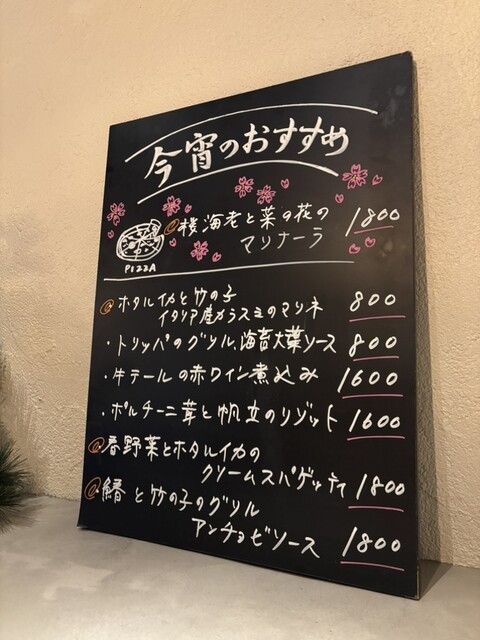 今宵のおすすめ
桜海老と菜の花の
マリナーラ 1800
PIZZA
ホタルイカと竹の子
イタリア産カラスミのマリネ 800
・トリッパのグリル、海苔大葉ソース 800
・牛テールの赤ワイン煮込み 1600
・ポルチーニ茸と帆立のリゾット 1600
春野菜とホタルイカの
クリームスパゲッティ 1800
鰆と竹の子のグリル
アンチョビソース 1800